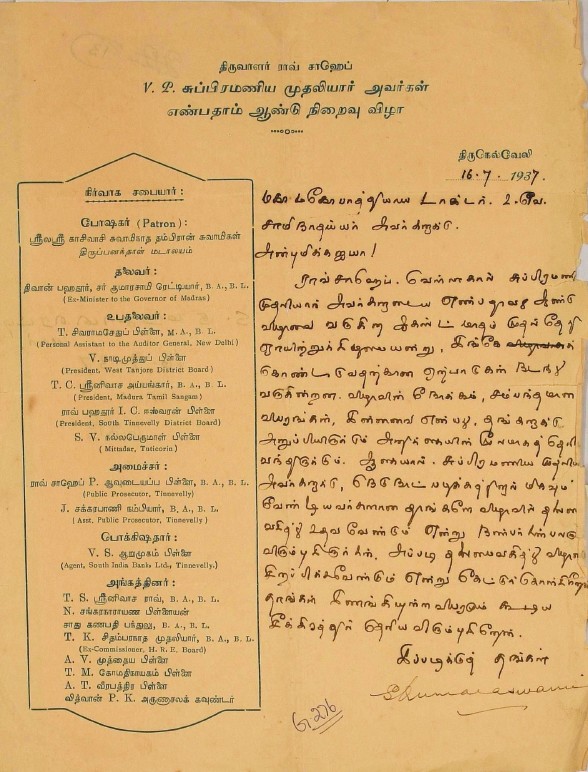 திருவாளர் ராவ் சாஹேப்
V. P. சுப்பிரமணிய முதலியார் அவர்கள்
எண்பதாம் ஆண்டு நிறைவு விழா
திருநெல்வேலி
16-7-1937.
நிர்வாக சபையார்:
போஷகர் (Patron):
ஸ்ரீலஸ்ரீ காசிவாசி சுவாமிநாத தம்பிரான் சுவாமிகள்
திருப்பனந்தாள் மடாலயம்
தலைவர்:
திவான் பஹதூர், சர் குமாரசாமி ரெட்டியார், B. A., B. L.
(Ex-Minister to the Governor of Madras)
உபதலைவர்:
T. சிவராமசேதுப் பிள்ளை, M. A., B. L.
(Personal Assistant to the Auditor General, New Delhi)
V. நாடிமுத்துப் பிள்ளை
(President, West Tanjore District Board)
T. C. ஸ்ரீனிவாச அய்யங்கார், B. A., B. L.
(President, Madura Tamil Sangam)
ராவ் பஹதூர் I. C. ஈஸ்வரன் பிள்ளை
(President, South Tinnevelly District Board)
S. V. நல்லபெருமாள் பிள்ளை
(Mittadar, Tuticorin)
அமைச்சர்:
ராவ் சாஹேப் P. ஆவுடையப்ப பிள்ளை, B. A., B. L.
(Public Prosecutor, Tinnevelly)
J. சக்கரபாணி நம்பியார், B. A., B. L.
(Asst. Public Prosecutor, Tinnevelly)
பொக்கிஷதார்:
V. S. ஆறுமுகம் பிள்ளை
(Agent, South India Bank Ltd., Tinnevelly.)
அங்கத்தினர்:
T. S. ஸ்ரீனிவாச ராவ், B. A., B. L.
N. சங்கரநாராயண பிள்ளையன்
சாது கணபதி பந்துலு, B. A., B. L.
T. K. சிதம்பரநாத முதலியார், B. A., B. L.
(Ex-Commissioner, H. R. E. Board)
A. V. முத்தைய பிள்ளை
T. M. கோமதிநாயகம் பிள்ளை
A. T. வீரபத்திர பிள்ளை
வித்வான் P. K. அருணாசலக் கவுண்டர்
மகாமகோபாத்தியாய டாக்டர். உ.வே.
சாமிநாதய்யர் அவர்களுக்கு.
அன்புமிக்க ஐயா!
ராவ்சாஹேப். வெள்ளகால் சுப்பிரமணிய
முதலியார் அவர்களுடைய எண்பதாவது ஆண்டு
விழாவை வருகிற ஆகஸ்ட் மாதம் முதல் தேதி
ஞாயிற்றுக்கிழமையன்று, இங்கே
கொண்டாடுவதற்கான ஏற்பாடுகள் நடந்து
வருகின்றன. விழாவின் நோக்கம், சம்பந்தமான
விபரங்கள், இன்னவை என்பது, தங்களுக்கு
அனுப்பியிருக்கும் அறிக்கையின் மூலமாகத் தெரிய
வந்திருக்கும். ஆகையால். சுப்பிரமணிய முதலியார்
அவர்களுக்கு, நெடுநாட்பழக்கத்திலும் மிகவும்
வேண்டியவர்களான தாங்களே விழாவில் தலைமை
வகித்து உதவ வேண்டும் என்று நண்பர்கள்
விரும்புகிறார்கள். அப்படி தலைமைவகித்து விழாவை
சிறப்பிக்கவேண்டும் என்று கேட்டுக்கொள்கிறேன்
தாங்கள் இணங்கியுள்ள விபரம் கூடிய
சீக்கிரத்தில் தெரிய விரும்புகிறேன்.
இப்படிக்குத் தங்கள்
S Kumaraswami
G.276